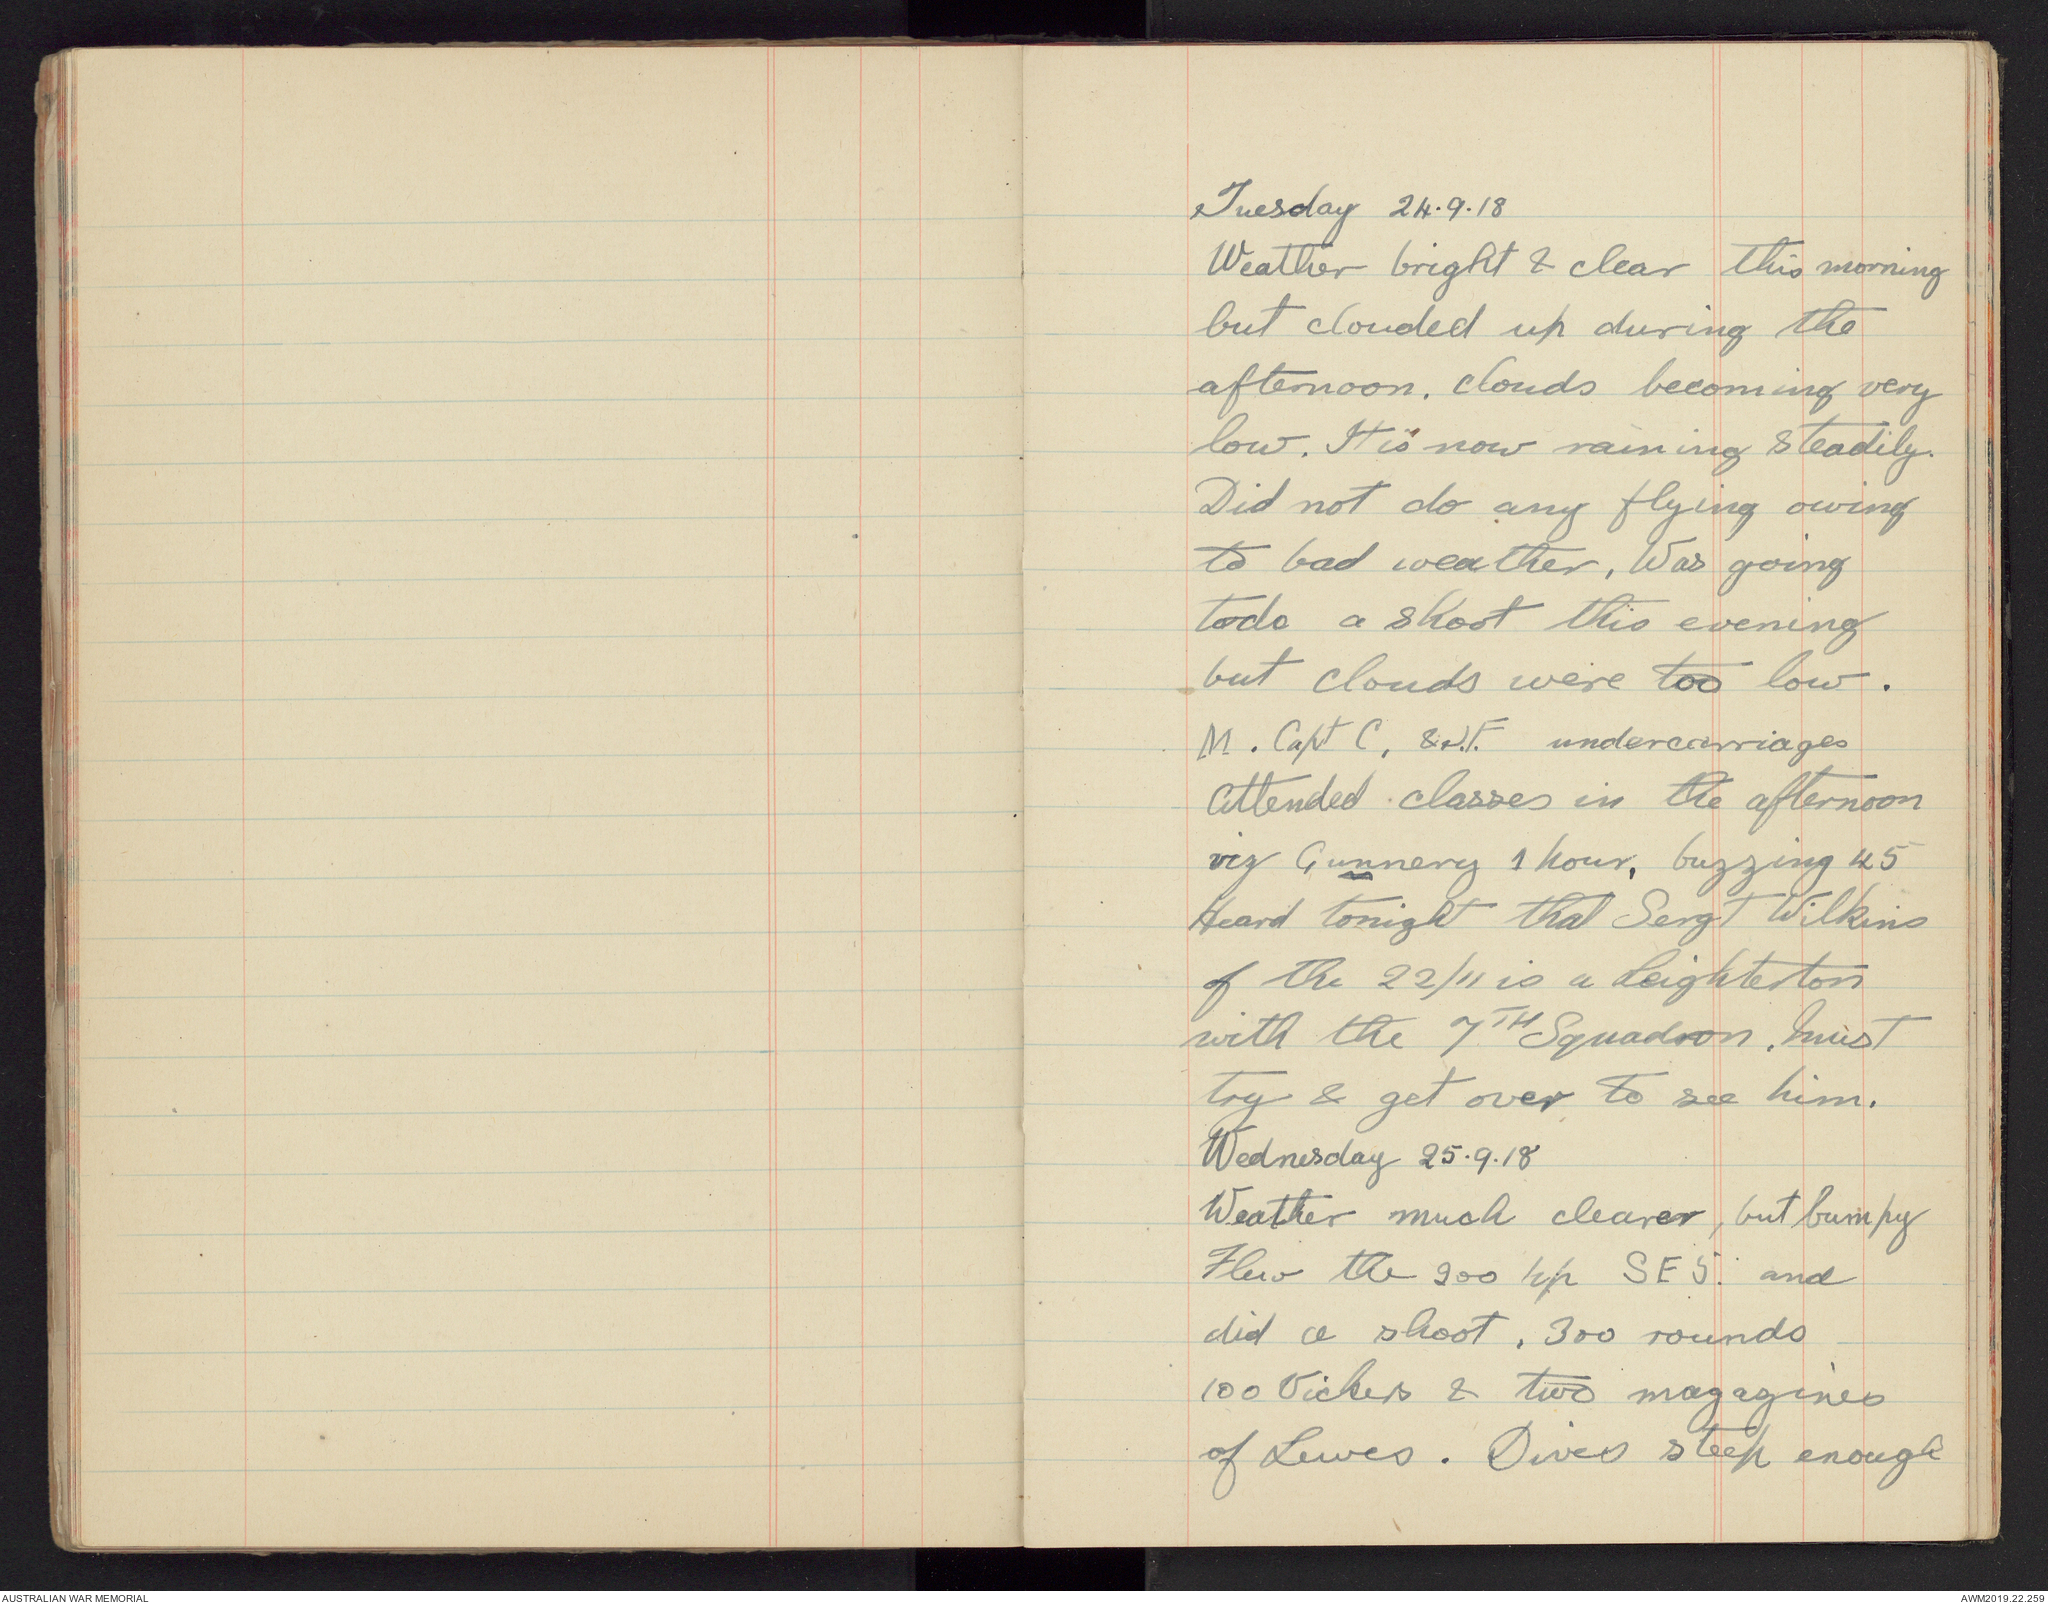 Tuesday 24.9.18
Weather bright & clear this morning
but clouded up during the
afternoon. clouds becoming very
low. It is now raining steadily.
Did not do any flying owing
to bad weather, Was going
to do a shoot this evening
but clouds were too low.
M. Capt C, & undercarriages
Attended classes in the afternoon
viz Gunnery 1 hour, buzzing 45
Heard tonight that Sergt Wilkins
of the 22/11 is a Leighterton
with the 7TH Squadron. Must
try & get over to see him.
Wednesday 25.9.18
Weather much clearer, but bumpy
Flew the 200 hp SE5. and
did a shoot, 300 rounds
100 Vickers & two magazines
of Lewes. Dives steep enough
AUSTRALIAN WAR MEMORIAL
AWM2019.22.259